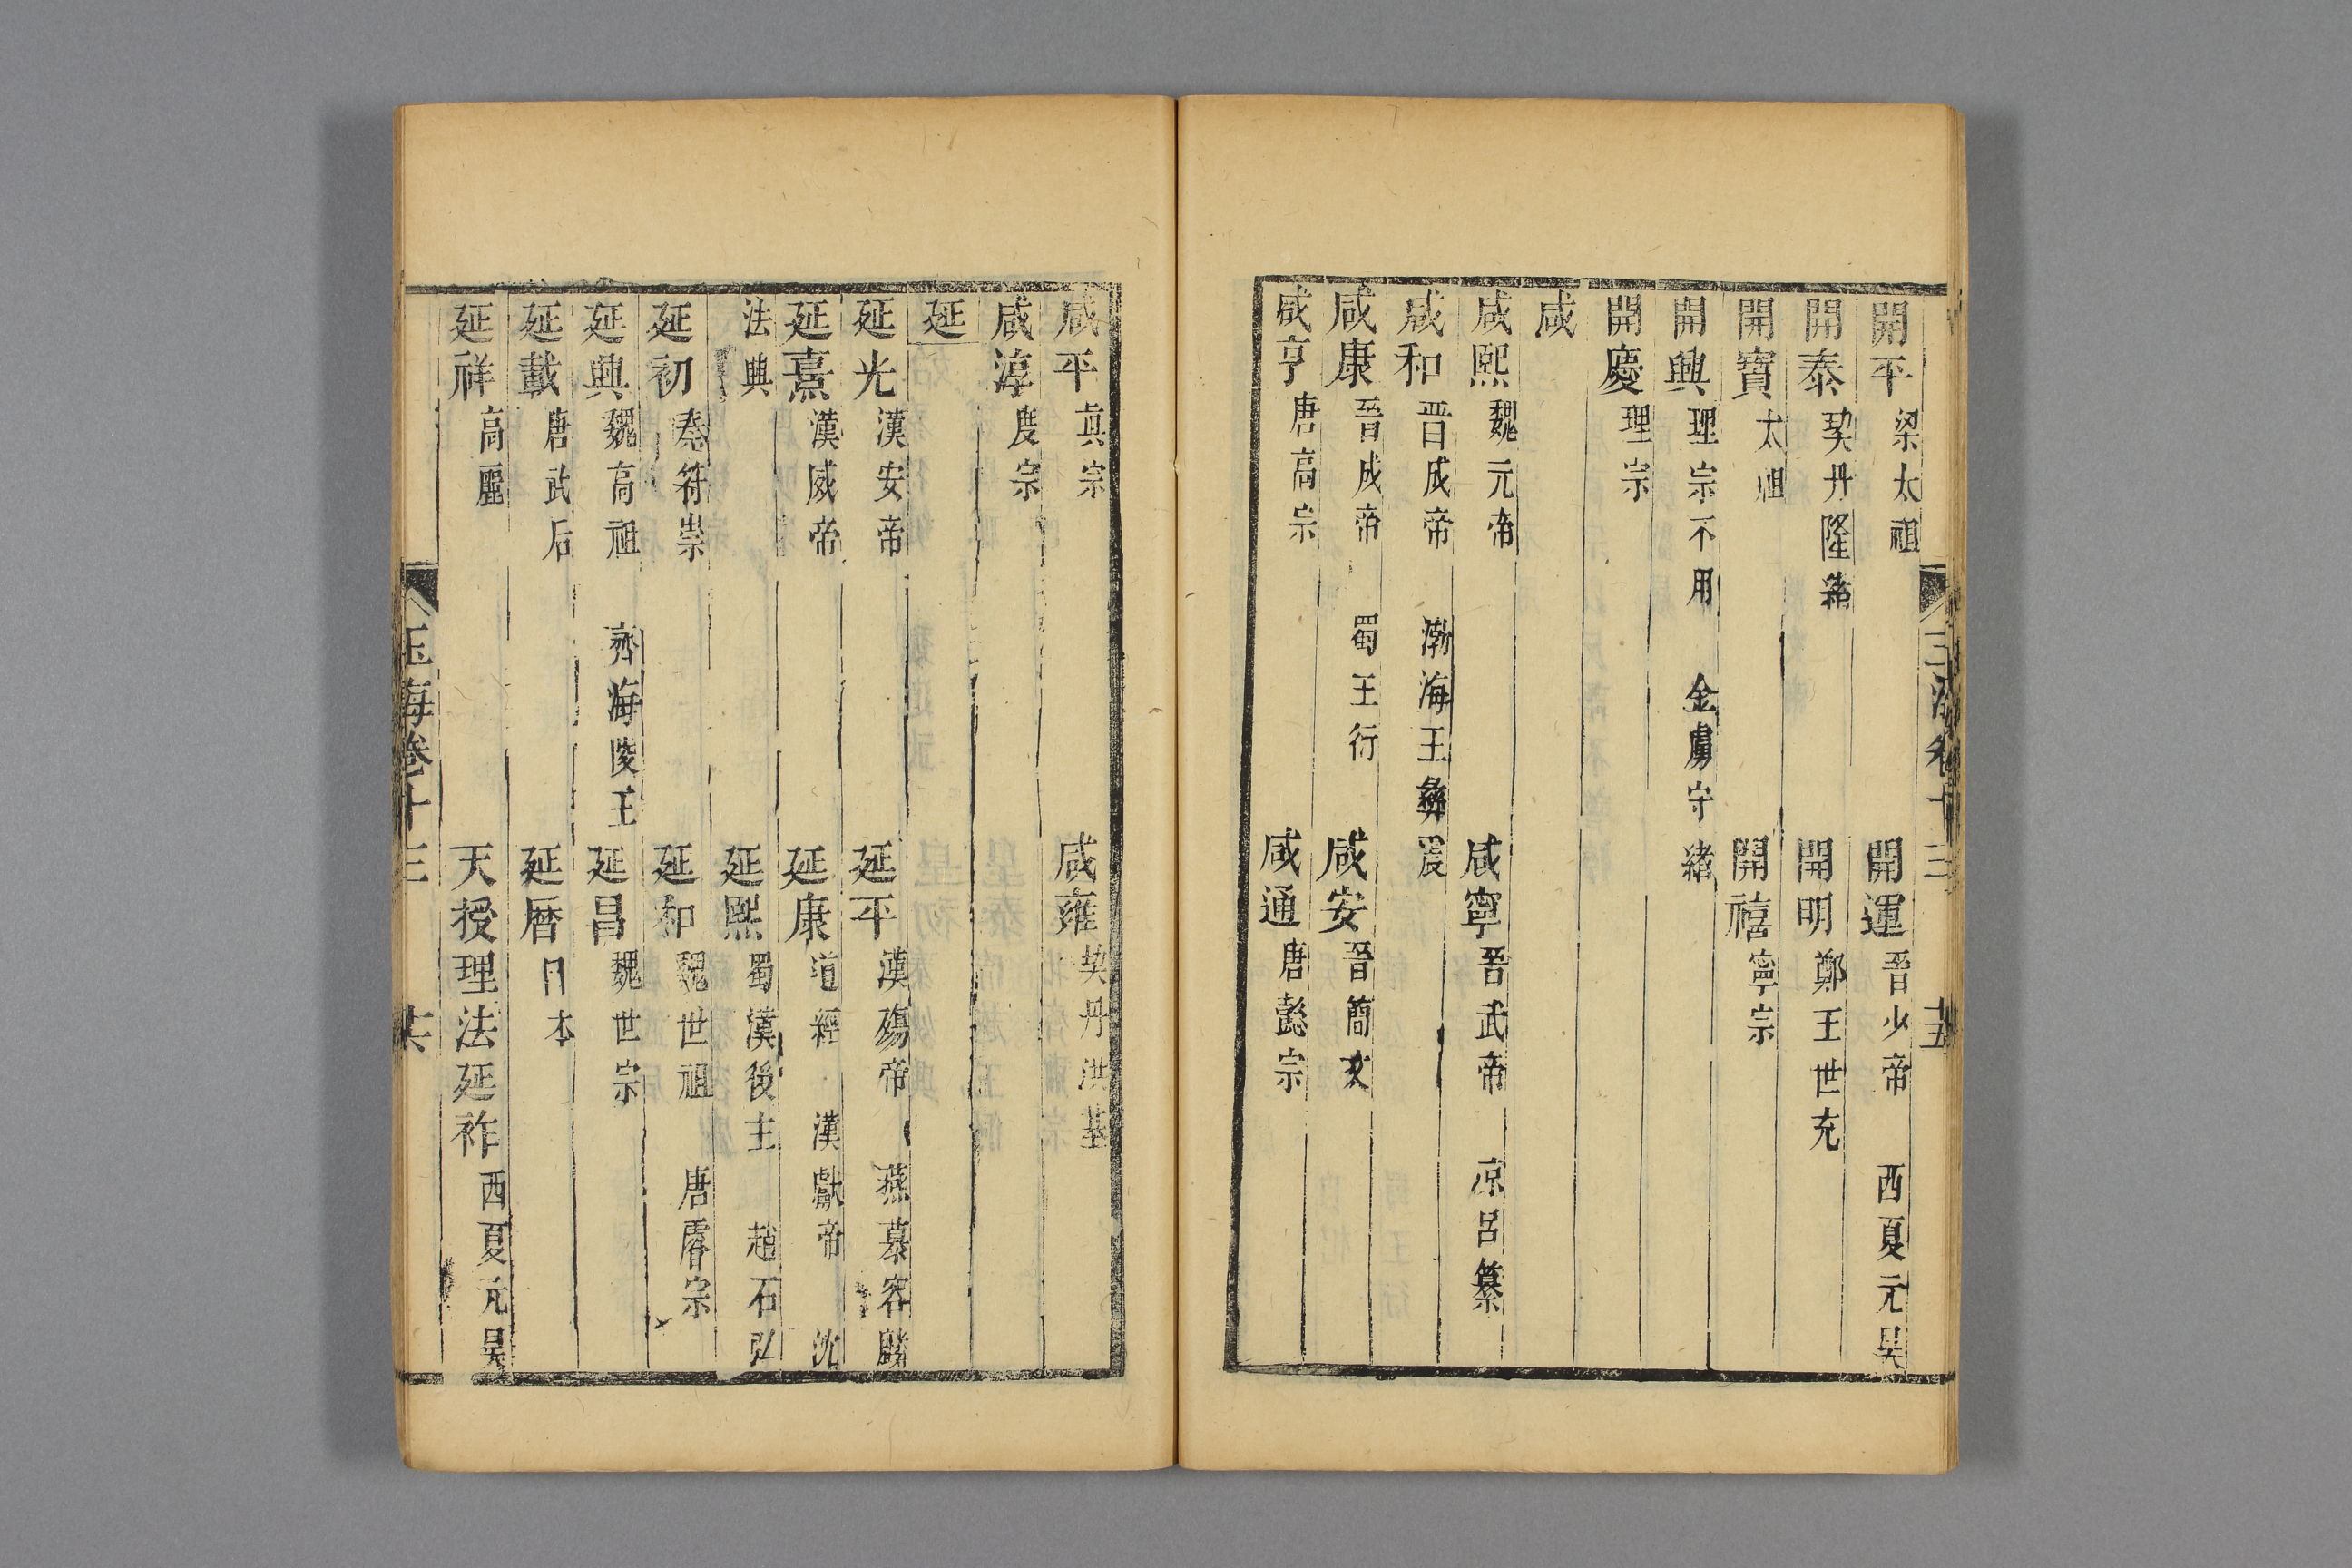 開平梁太祖 開運晉少帝 西夏元昊
開泰契丹隆緒 開明鄭王世充
開寶太祖 開禧寧宗
開興理宗不用 金虜守緒
開慶理宗
咸
咸熙魏元帝 咸寧晉武帝 凉呂纂
咸和晋成帝 渤海王彝震
咸康晉成帝 蜀王衍 咸安晉簡文
咸亨唐高宗 咸通唐懿宗
咸平真宗 咸雍契丹洪基
咸淳度宗
延
延光漢安帝 延平漢殤帝 燕慕容麟
延熹漢威帝 延康道經 漢獻帝 沈
法興 延熙蜀漢後主 趙石弘
延初秦符崇 延和魏世祖 唐睿宗
延興魏高祖 齊海陵王 延昌魏世宗
延載唐武后 延曆日本
延祥高麗 天授理法延祚西夏元昊
玉海卷十三 共